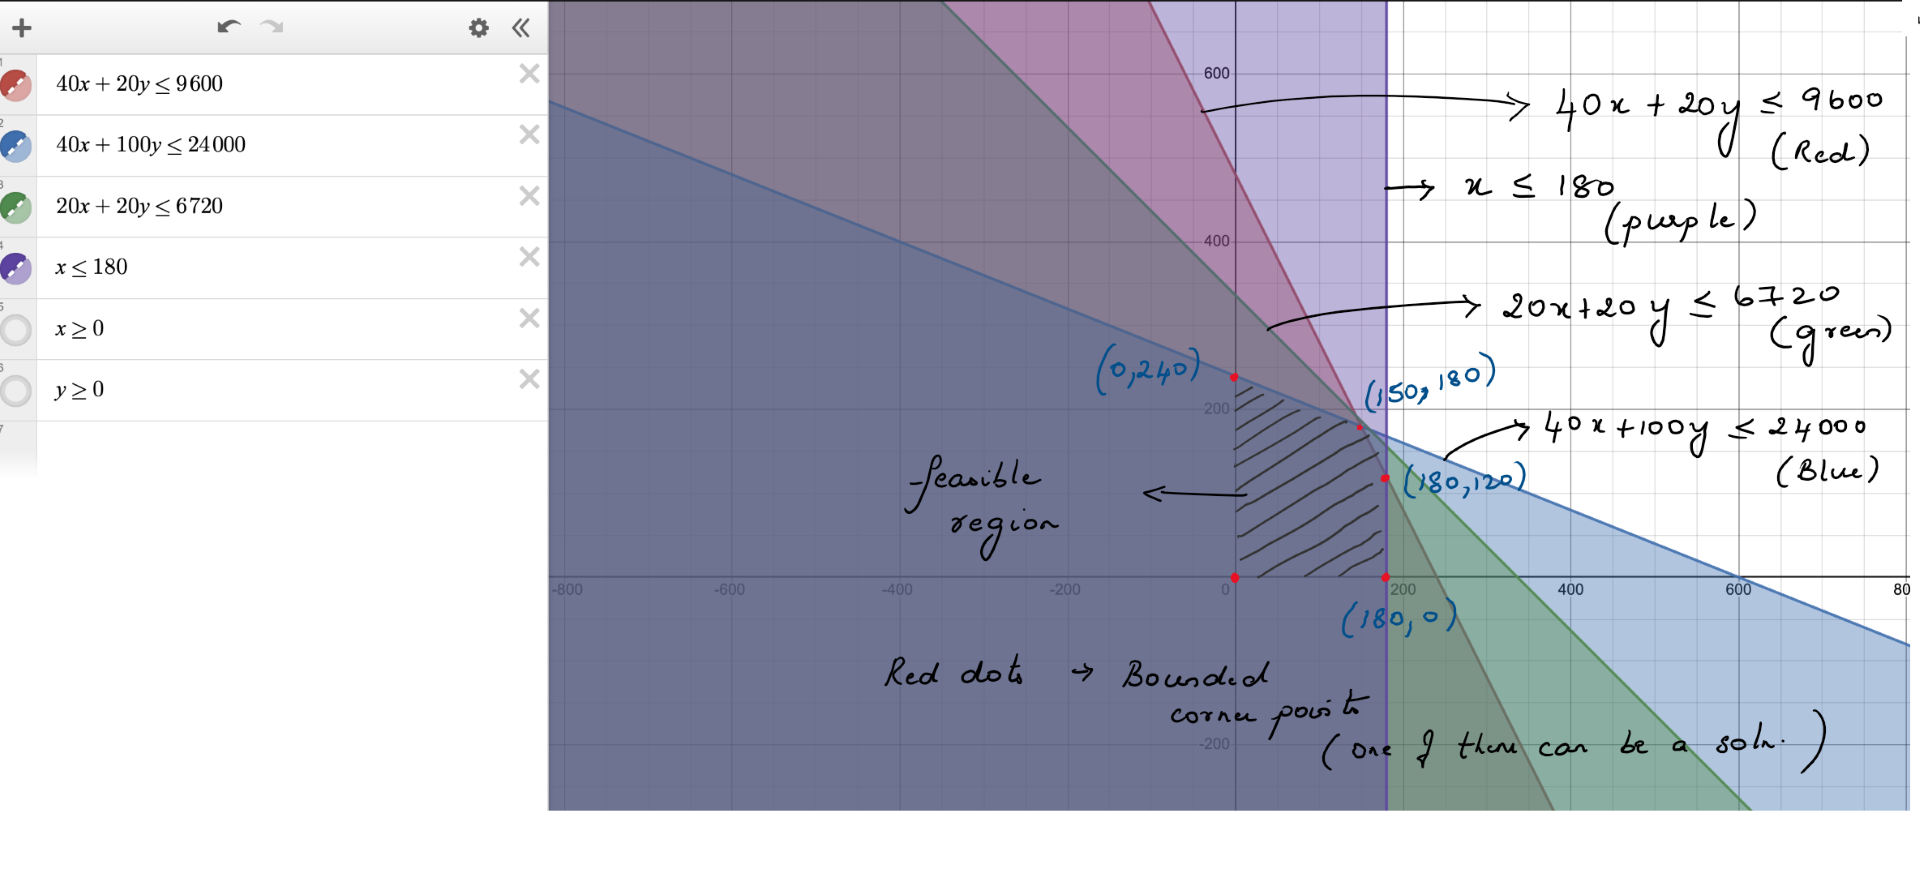 40x + 20y ≤ 9600
40x + 100y ≤ 24000
20x + 20y ≤ 6720
x ≤ 180
x ≥ 0
y ≥ 0
600
400
200
-200
-800
-600
-400
-200
0
200
400
600
80
40x + 20y ≤ 9600
(Red)
x ≤ 180
(purple)
20x+20y ≤ 6720
(green)
(0,240)
(150, 180)
40x+100y ≤ 24000
(Blue)
(180,120)
feasible
region
(180,0)
Red dots → Bounded
corner points
(one of them can be a soln.)